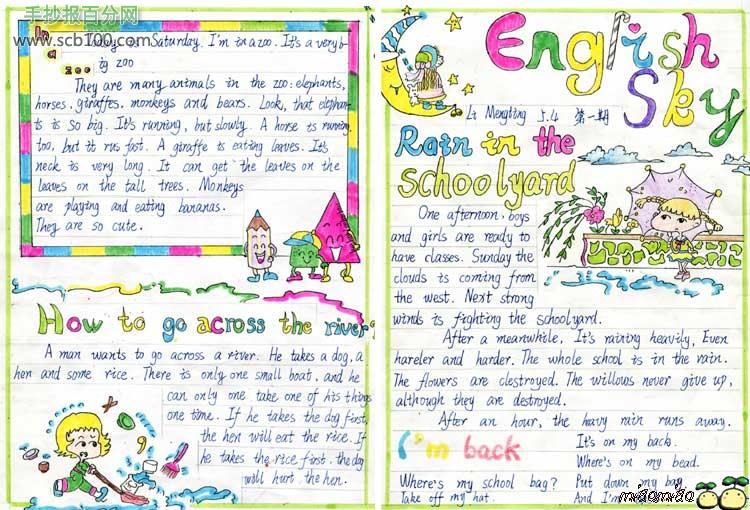 手抄报百分网
www.scb100.com
In
a
zoo
Today is Saturday. I'm in a zoo. It's a very b-
ig zoo
They are many animals in the zoo: elephants,
horses, giraffes, monkeys and bears. Look, that elephan-
ts is so big. It's running, but slowly. A horse is running,
too, but it rus fast. A giraffe is eating leaves. It's
neck is very long. It can get the leaves on the
leaves on the tall trees. Monkeys
are playing and eating bananas.
They are so cute.
How to go across the river?
A man wants to go across a river. He takes a dog, a
hen and some rice. There is only one small boat, and he
can only one take one of his things
one time. If he takes the dog first,
the hen will eat the rice. If
he takes the rice first, the dog
will hurt the hen.
English
Sky
Li Mengting 5.4 第一期
Rain in the
schoolyard
One afternoon. boys
and girls are ready to
have classes. Sunday the
clouds is coming from
the west. Next strong
winds is fighting the schoolyard.
After a meanwhile, It's raining heavily, Even
hareler and harder. The whole school is in the rain.
The flowers are clestroyed. The willows never give up,
although they are destroyed.
After an hour, the havy rain runs away.
I'm back
Where's my school bag?
Take off my hat.
It's on my back.
Where's on my bead.
Put down my bag.
And I'm
miaomiao